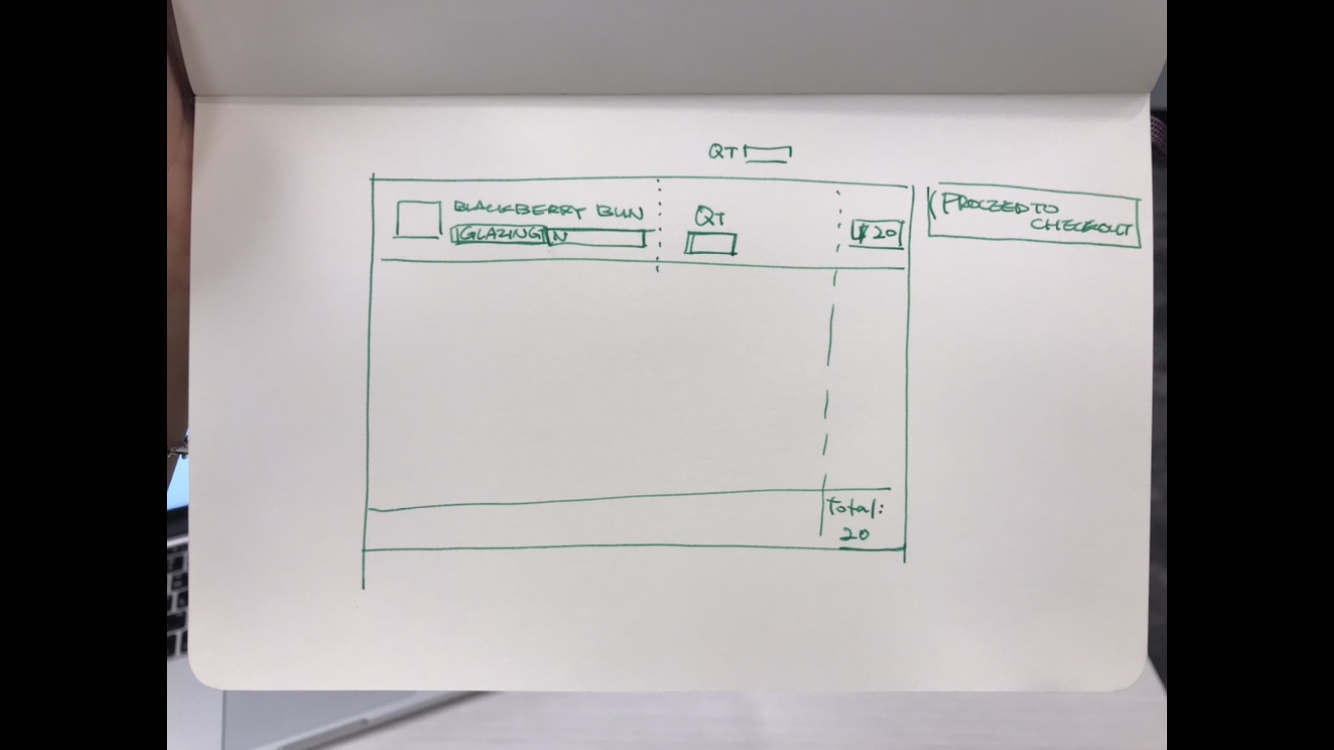 QT
BLACKBERRY BUN
GLAZING N
QT
$20
PROCEED TO
CHECKOUT
Total:
20